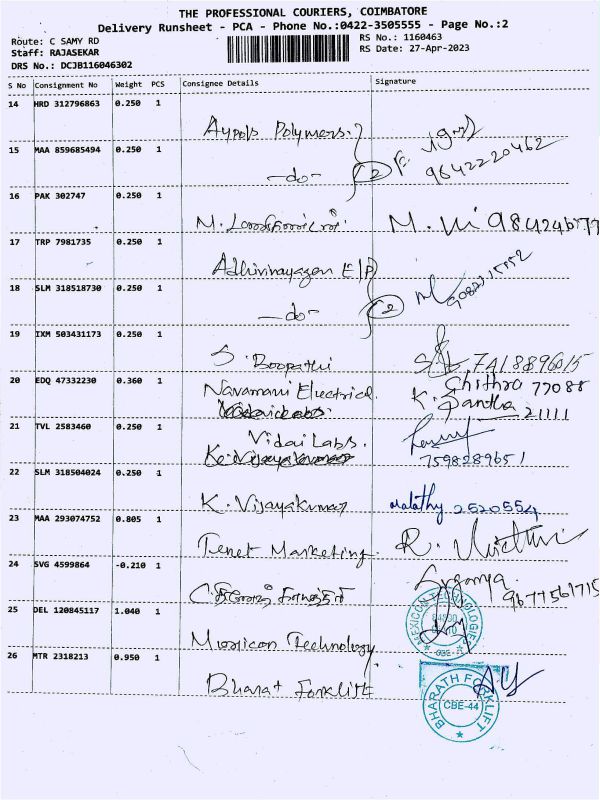 THE PROFESSIONAL COURIERS, COIMBATORE
Delivery Runsheet - PCA - Phone No.:0422-3505555 - Page No.:2
Route: C SAMY RD
RS No.: 1160463
Staff: RAJASEKAR
RS Date: 27-Apr-2023
DRS No.: DCJB116046302
S No Consignment No Weight PCS Consignee Details Signature
14 HRD 312796863 0.250 1
Polymers
15 MAA 859685494 0.250 1
-do- 2 9842220462
16 PAK 302747 0.250 1
M.
17 TRP 7981735 0.250 1
Adhivinayagan E/P
18 SLM 318518730 0.250 1
-do- 2
19 IXM 503431173 0.250 1
S. Boopathi 7418896015
20 EDQ 47332230 0.360 1
Navamani Electrical Chithra 77088
K. 21111
21 TVL 2583460 0.250 1
Vidai Labs.
7598289651
22 SLM 318504024 0.250 1
K. Vijayakumar malathy 2520554
23 MAA 293074752 0.805 1
Tenet Marketing R.
24 SVG 4599864 -0.210 1
9677561715
25 DEL 120845117 1.040 1
Technology
MEXICON TECHNOLOGIES
CBE
26 MTR 2318213 0.950 1
Bharat Forklift
BHARATH FORKLIFT
CBE-44